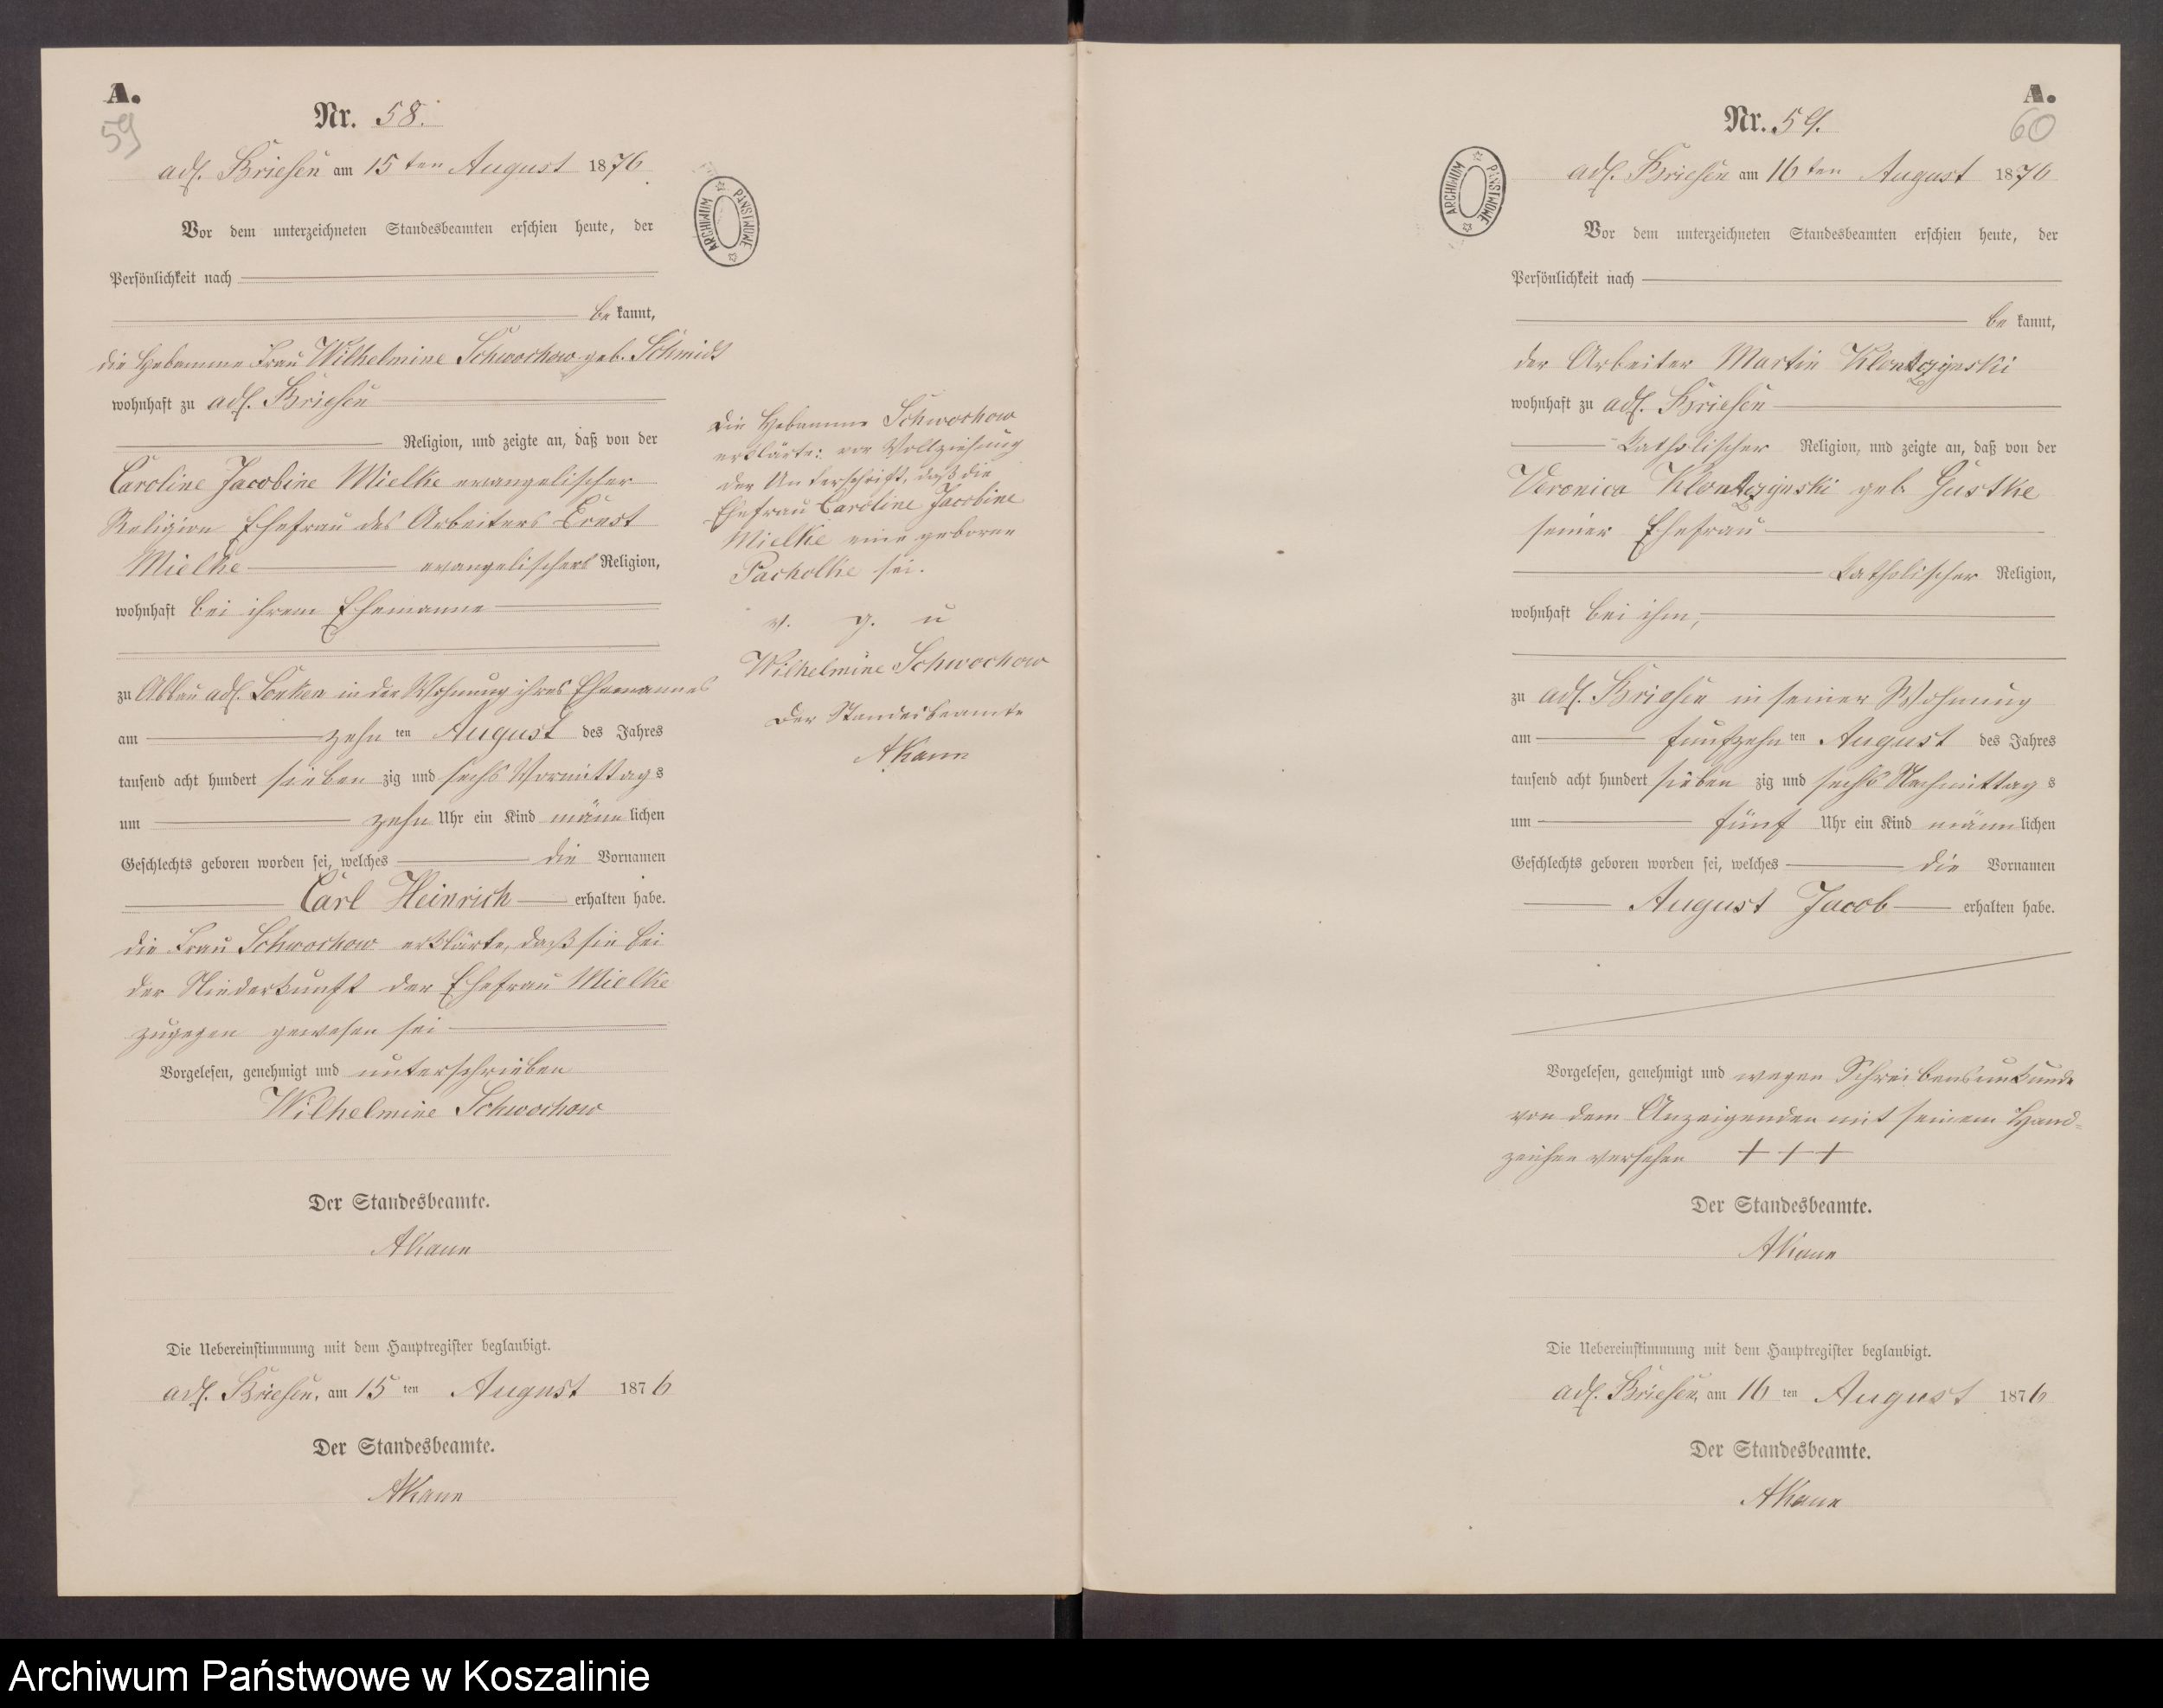 A.
59
Nr. 58.
adl. Briesen am 15ten August 1876
Vor dem unterzeichneten Standesbeamten erschien heute, der
Persönlichkeit nach
be kannt,
die Hebamme Frau Wilhelmine Schwochow geb. Schmidt
wohnhaft zu adl. Briesen
Religion, und zeigte an, daß von der
Caroline Jacobine Mielke evangelischer
Religion Ehefrau des Arbeiters Ernst
Mielke evangelischer Religion,
wohnhaft bei ihrem Ehemanne
zu Abbau adl. Lonken in der Wohnung ihres Ehemannes
am zehn ten August des Jahres
tausend acht hundert sieben zig und sechs Vormittag s
um zehn Uhr ein Kind männ lichen
Geschlechts geboren worden sei, welches die Vornamen
Carl Heinrich erhalten habe.
die Frau Schwochow erklärte, daß sie bei
der Niederkunft der Ehefrau Mielke
zugegen gewesen sei
Vorgelesen, genehmigt und unterschrieben
Wilhelmine Schwochow
Der Standesbeamte.
AKann
Die Uebereinstimmung mit dem Hauptregister beglaubigt.
adl. Briesen, am 15 ten August 1876
Der Standesbeamte.
AKann
ARCHIWUM PAŃSTWOWE
Die Hebamme Schwochow
erklärte: vor Vollziehung
der Unterschrift, daß die
Ehefrau Caroline Jacobine
Mielke eine geborne
Pacholke sei.
v. g. u
Wilhelmine Schwochow
Der Standesbeamte
AKann
A.
60
Nr. 59.
ARCHIWUM PAŃSTWOWE
adl. Briesen am 16ten August 1876
Vor dem unterzeichneten Standesbeamten erschien heute, der
Persönlichkeit nach
be kannt,
der Arbeiter Martin
wohnhaft zu adl. Briesen
Katholischer Religion, und zeigte an, daß von der
Veronica geb. Gustke
seiner Ehefrau
Katholischer Religion,
wohnhaft bei ihm,
zu adl. Briesen in seiner Wohnung
am fünfzehn ten August des Jahres
tausend acht hundert sieben zig und sechs Nachmittag s
um fünf Uhr ein Kind männ lichen
Geschlechts geboren worden sei, welches die Vornamen
August Jacob erhalten habe.
Vorgelesen, genehmigt und wegen Schreibensunkunde
von dem Anzeigenden mit seinem Hand=
zeichen versehen + + +
Der Standesbeamte.
AKann
Die Uebereinstimmung mit dem Hauptregister beglaubigt.
adl. Briesen, am 16 ten August 1876
Der Standesbeamte.
AKann
Archiwum Państwowe w Koszalinie